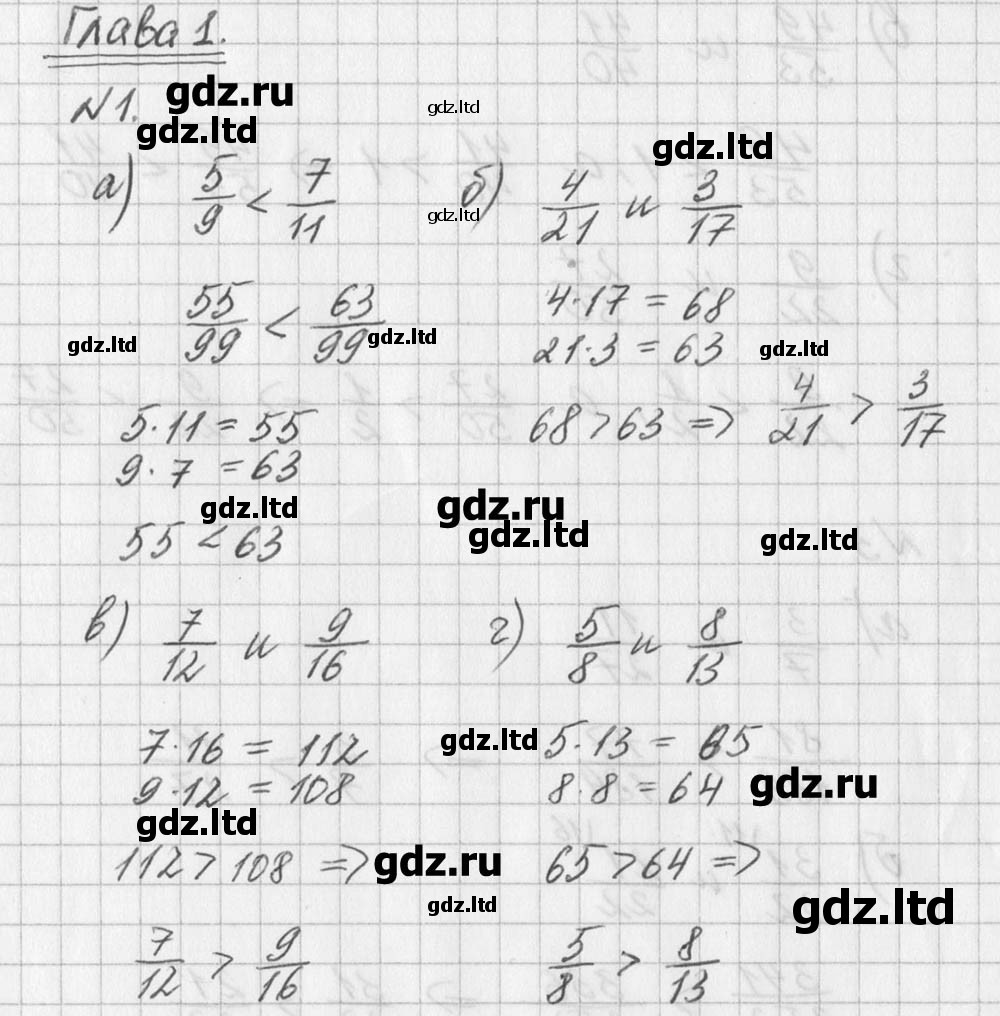 Глава 1.
№1.
gdz.ru
gdz.ltd
gdz.ltd
gdz.ltd
а) 5/9 < 7/11
gdz.ltd
б) 4/21 и 3/17
55/99 < 63/99
gdz.ltd
gdz.ltd
5·11 = 55
9·7 = 63
gdz.ltd
55 < 63
4·17 = 68
21·3 = 63
gdz.ltd
68 > 63 => 4/21 > 3/17
gdz.ru
gdz.ltd
gdz.ltd
в) 7/12 и 9/16
7·16 = 112
9·12 = 108
gdz.ltd
112 > 108 =>
gdz.ru
gdz.ltd
7/12 > 9/16
г) 5/8 и 8/13
gdz.ltd
5·13 = 65
8·8 = 64
gdz.ru
65 > 64 =>
gdz.ltd
5/8 > 8/13